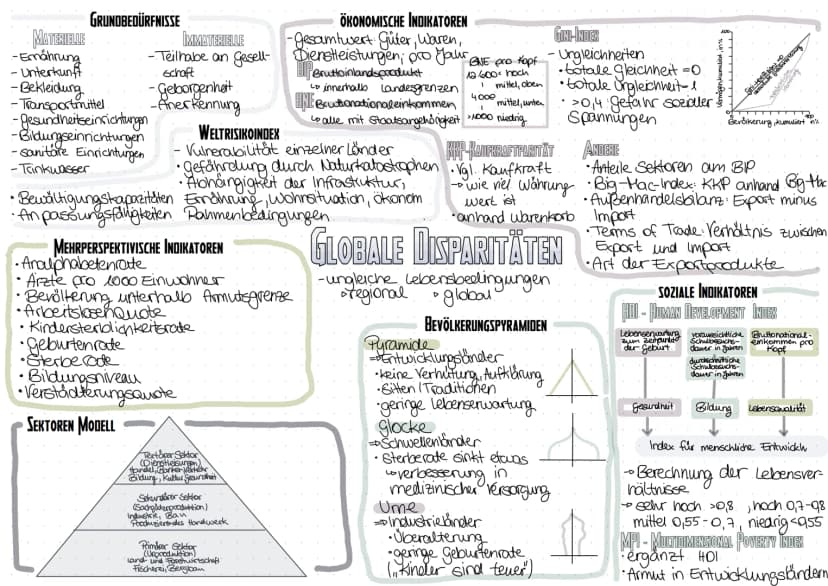 GRUNDBEDÜRFNISSE
MATERIELLE
- Ernährung
- Unterkunft
- Bekleidung
- Transportmittel
- gesundheitseinrichtungen
- Bildungseinrichtungen
- sanitäre Einrichtungen
- Trinkwasser
IMMATERIELLE
- Teilhabe an Gesell-
schaft
- Geborgenheit
- Anerkennung
ÖKONOMISCHE INDIKATOREN
- Gesamtwert: Güter, Waren,
Dienstleistungen, pro Jahr
BIP Bruttoinlandsprodukt
↳ innerhalb Landesgrenzen
BNE Bruttonationaleinkommen
↳ alle mit Staatsangehörigkeit
BNE pro Kopf
12 600< hoch
mittel, oben
4000
mittel, unten
>1000 niedrig
GINI-INDEX
- Ungleichheiten
• totale Gleichheit = 0
• totale Ungleichheit = 1
• >0,4 Gefahr sozialer
Spannungen
100
Vermögen, kumuliert, in %
100
Bevölkerung, kumuliert in %
WELTRISIKOINDEX
- Vulnerabilität einzelner Länder
• gefährdung durch Naturkatastrophen
• Abhängigkeit der Infrastruktur,
Ernährung, Wohnsituation, ökonom
Rahmenbedingungen
• Bewältigungskapazitäten
• Anpassungsfähigkeiten
KKP-KAUFKRAFTPARITÄT
• Vgl. Kaufkraft
→ wie viel Währung
wert ist
• anhand Warenkorb
ANDERE
• Anteile Sektoren am BIP
• Big-Mac-Index: KKP anhand Big Mac
• Außenhandelsbilanz: Export minus
Import
• Terms of Trade: Verhältnis zwischen
Export und Import
• Art der Exportprodukte
GLOBALE DISPARITÄTEN
- ungleiche Lebensbedingungen
↳ regional ↳ global
MEHRPERSPEKTIVISCHE INDIKATOREN
• Analphabetenrate
• Ärzte pro 1000 Einwohner
• Bevölkerung unterhalb Armutsgrenze
• Arbeitslosenquote
• Kindersterblichkeitsrate
• Geburtenrate
• Sterberate
• Bildungsniveau
• Verstädterungsquote
SEKTOREN MODELL
Tertiärer Sektor
(Dienstleistungen)
Handel, Banken, Verkehr
Bildung, Kultur, Gesundheit
Sekundärer Sektor
(Sachgüterproduktion)
Industrie, Bau
Produzierendes Handwerk
Primärer Sektor
(Urproduktion)
Land- und Forstwirtschaft
Fischerei, Bergbau
BEVÖLKERUNGSPYRAMIDEN
Pyramide
⇒ Entwicklungsländer
• keine Verhütung, Aufklärung
• Sitten/Traditionen
• geringe Lebenserwartung
Glocke
⇒ Schwellenländer
• Sterberate sinkt etwas
↳ verbesserung in
medizinischer Versorgung
Urne
⇒ Industrieländer
• Überalterung
• geringe Geburtenrate
(„Kinder sind teuer")
SOZIALE INDIKATOREN
HDI - HUMAN DEVELOPMENT INDEX
Lebenserwartung
zum Zeitpunkt
der Geburt
voraussichtliche
Schulbesuchs-
dauer in Jahren
durchschnittliche
Schulbesuchs-
dauer in Jahren
Bruttonational-
einkommen pro
Kopf
Gesundheit
Bildung
Lebensqualität
Index für menschliche Entwickln
→ Berechnung der Lebensver-
hältnisse
→ sehr hoch >0,8 , hoch 0,7-0,8
mittel 0,55-0,7, niedrig <0,55
MPI - MULTIDIMENSIONAL POVERTY INDEX
• ergänzt HDI
• Armut in Entwicklungsländern